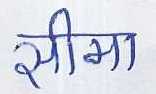 सीमा